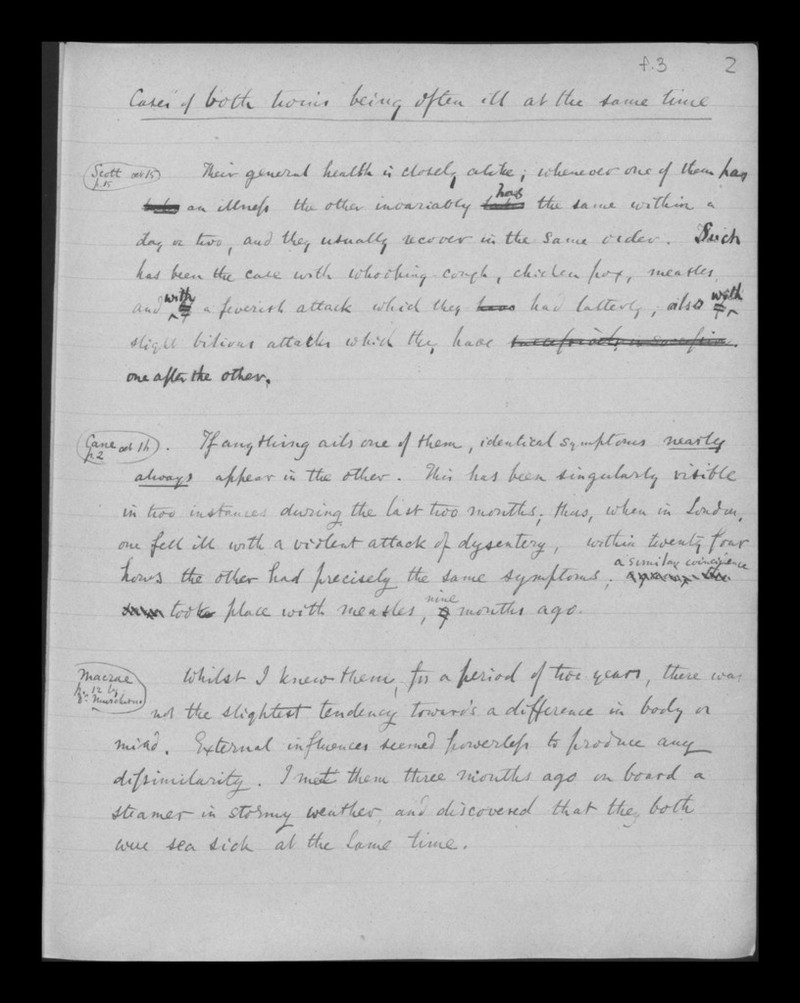 f.3 2
Cases of both twins being often ill at the same time
Scott aet 15
p.15
Their general health is closely alike; whenever one of them has
an illness the other invariably has the same within a
day or two, and they usually recover in the same order. Such
has been the case with whooping cough, chicken pox, measles
and with a feverish attack which they had latterly, also with
slight bilious attacks which they have
one after the other.
Cane aet
p.2
If anything ails one of them, identical symptoms nearly
always appear in the other. This has been singularly visible
in two instances during the last two months; thus, when in London,
one fell ill with a violent attack of dysentery, within twenty four
hours the other had precisely the same symptoms; a similar coincidence
took place with measles, nine months ago.
Macrae
p. 12 by
Whilst I knew them, for a period of two years, there was
not the slightest tendency towards a difference in body or
mind. External influences seemed powerless to produce any
dissimilarity. I met them three months ago on board a
steamer in stormy weather, and discovered that they both
were sea sick at the same time.